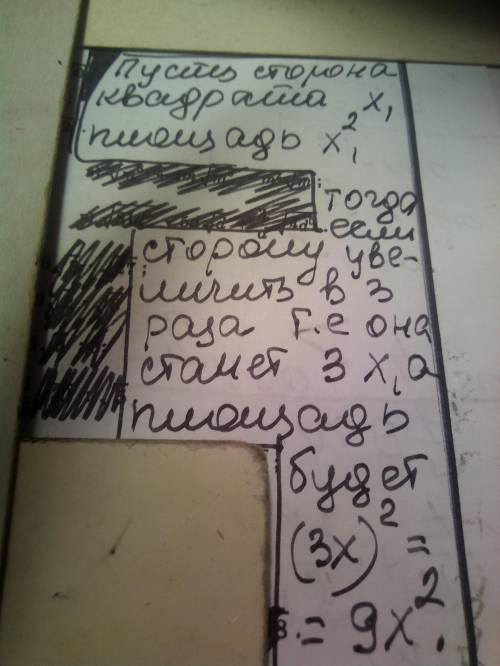 Пусть сторона
квадрата x,
площадь x²,
тогда
если
сторону уве-
личить в 3
раза т.е она
станет 3 x, а
площадь
будет
(3x)² =
= 9x².